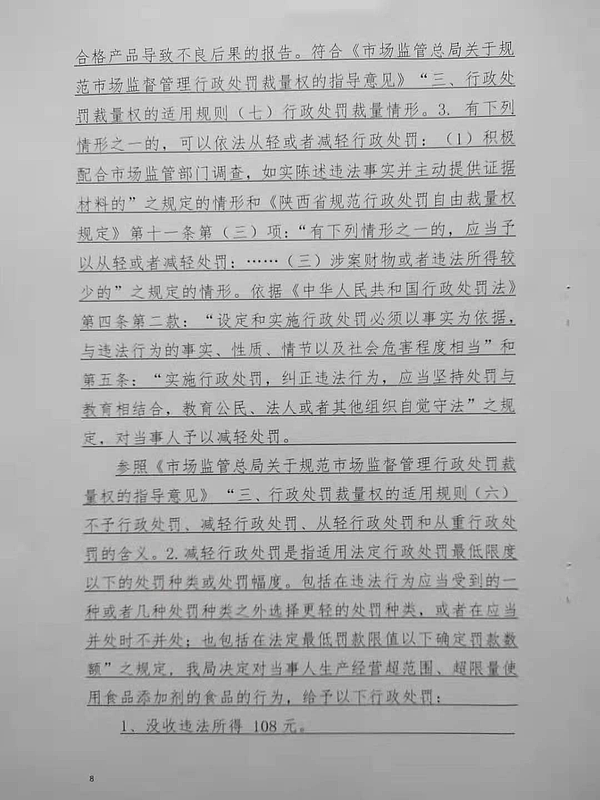 合格产品导致不良后果的报告。符合《市场监管总局关于规
范市场监督管理行政处罚裁量权的指导意见》“三、行政处
罚裁量权的适用规则（七）行政处罚裁量情形。3. 有下列
情形之一的，可以依法从轻或者减轻行政处罚：（1）积极
配合市场监管部门调查，如实陈述违法事实并主动提供证据
材料的”之规定的情形和《陕西省规范行政处罚自由裁量权
规定》第十一条第（三）项：“有下列情形之一的，应当予
以从轻或者减轻处罚：……（三）涉案财物或者违法所得较
少的”之规定的情形。依据《中华人民共和国行政处罚法》
第四条第二款：“设定和实施行政处罚必须以事实为依据，
与违法行为的事实、性质、情节以及社会危害程度相当”和
第五条：“实施行政处罚，纠正违法行为，应当坚持处罚与
教育相结合，教育公民、法人或者其他组织自觉守法”之规
定，对当事人予以减轻处罚。
参照《市场监管总局关于规范市场监督管理行政处罚裁
量权的指导意见》“三、行政处罚裁量权的适用规则（六）
不予行政处罚、减轻行政处罚、从轻行政处罚和从重行政处
罚的含义。2.减轻行政处罚是指适用法定行政处罚最低限度
以下的处罚种类或处罚幅度。包括在违法行为应当受到的一
种或者几种处罚种类之外选择更轻的处罚种类，或者在应当
并处时不并处；也包括在法定最低罚款限值以下确定罚款数
额”之规定，我局决定对当事人生产经营超范围、超限量使
用食品添加剂的食品的行为，给予以下行政处罚：
1、没收违法所得 108 元。
8